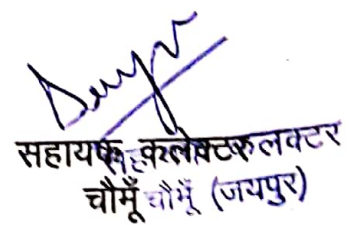 सहायक कलेक्टर
चौमूँ चौमूँ (जयपुर)